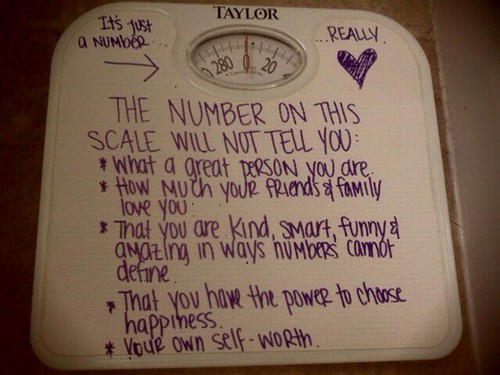 TAYLOR
It's just
a NUMBER...
...REALLY.
280 0 20
THE NUMBER ON THIS
SCALE WILL NOT TELL YOU:
* What a great PERSON you are.
* How Much your FRIENDS & family
love you.
* That you are kind, smart, funny &
amazing in ways numbers cannot
define.
* That you have the power to choose
happiness.
* Your own self-worth.